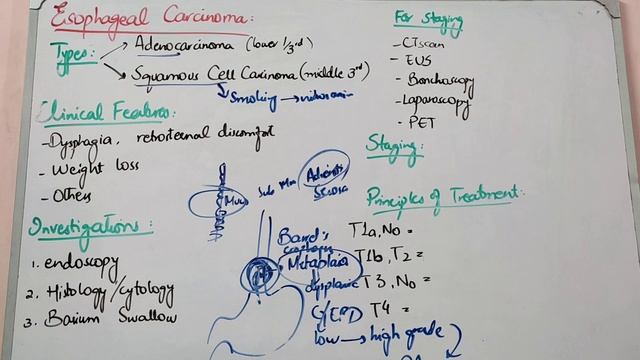 Esophageal Carcinoma:
Types:
Adenocarcinoma (lower 1/3rd)
Squamous Cell Carcinoma (middle 3rd)
Smoking →
Clinical Features:
- Dysphagia, retrosternal discomfort
- Weight loss
- Others
Investigations:
1. endoscopy
2. Histology/cytology
3. Barium Swallow
Muco
Sub Mu
Serosa
Metaplasia
dysplasia
GERD
low → high grade
For Staging
- CT scan
- EUS
- Bonchoscopy
- Laparoscopy
- PET
Staging:
Principles of Treatment:
T1a, No =
T1b, T2 =
T3, No =
T4 =